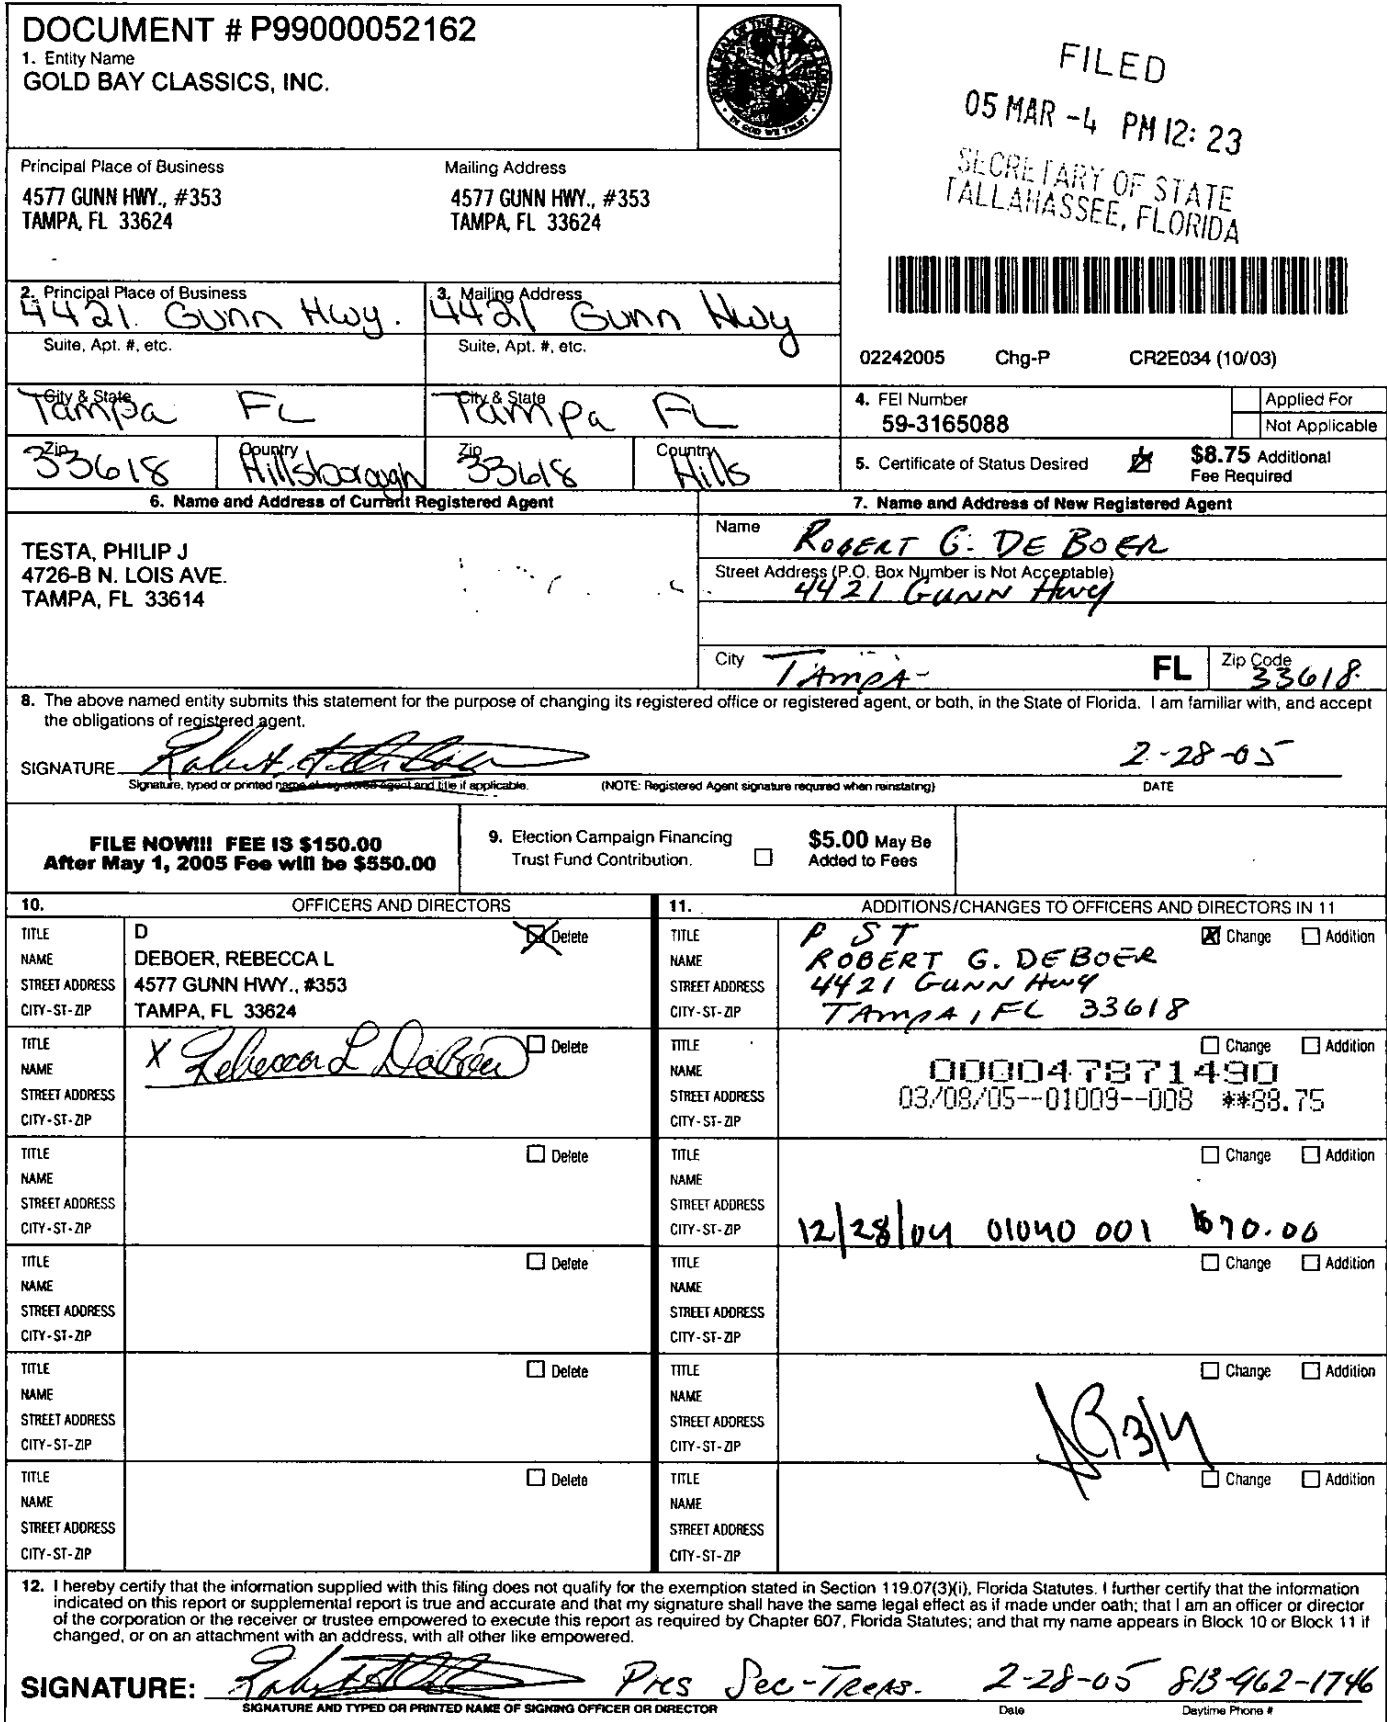 DOCUMENT # P99000052162
1. Entity Name
GOLD BAY CLASSICS, INC.
GREAT SEAL OF THE STATE OF FLORIDA
IN GOD WE TRUST
FILED
05 MAR -4 PM 12: 23
SECRETARY OF STATE
TALLAHASSEE, FLORIDA
Principal Place of Business
4577 GUNN HWY., #353
TAMPA, FL 33624
Mailing Address
4577 GUNN HWY., #353
TAMPA, FL 33624
2. Principal Place of Business
4421 Gunn Hwy.
3. Mailing Address
4421 Gunn Hwy
Suite, Apt. #, etc.
Suite, Apt. #, etc.
02242005 Chg-P CR2E034 (10/03)
City & State
Tampa FL
City & State
Tampa FL
Zip
33618
Country
Hillsborough
Zip
33618
Country
Hills
4. FEI Number
59-3165088
Applied For
Not Applicable
5. Certificate of Status Desired
$8.75 Additional
Fee Required
6. Name and Address of Current Registered Agent
TESTA, PHILIP J
4726-B N. LOIS AVE.
TAMPA, FL 33614
7. Name and Address of New Registered Agent
Name
ROBERT G. DE BOER
Street Address (P.O. Box Number is Not Acceptable)
4421 GUNN Hwy
City TAMPA FL Zip Code 33618
8. The above named entity submits this statement for the purpose of changing its registered office or registered agent, or both, in the State of Florida. I am familiar with, and accept
the obligations of registered agent.
SIGNATURE 2-28-05
Signature, typed or printed name of registered agent and title if applicable. (NOTE: Registered Agent signature required when reinstating) DATE
FILE NOW!!! FEE IS $150.00
After May 1, 2005 Fee will be $550.00
9. Election Campaign Financing
Trust Fund Contribution.
$5.00 May Be
Added to Fees
10. OFFICERS AND DIRECTORS
TITLE D Delete
NAME DEBOER, REBECCA L
STREET ADDRESS 4577 GUNN HWY., #353
CITY-ST-ZIP TAMPA, FL 33624
TITLE Delete
NAME X Rebecca L DeBoer
STREET ADDRESS
CITY-ST-ZIP
TITLE Delete
NAME
STREET ADDRESS
CITY-ST-ZIP
TITLE Delete
NAME
STREET ADDRESS
CITY-ST-ZIP
TITLE Delete
NAME
STREET ADDRESS
CITY-ST-ZIP
TITLE Delete
NAME
STREET ADDRESS
CITY-ST-ZIP
11. ADDITIONS/CHANGES TO OFFICERS AND DIRECTORS IN 11
TITLE P S T X Change Addition
NAME ROBERT G. DEBOER
STREET ADDRESS 4421 GUNN Hwy
CITY-ST-ZIP TAMPA, FL 33618
TITLE Change Addition
NAME 000047871490
STREET ADDRESS 03/08/05--01009--008 **88.75
CITY-ST-ZIP
TITLE Change Addition
NAME
STREET ADDRESS
CITY-ST-ZIP 12/28/04 01040 001 $70.00
TITLE Change Addition
NAME
STREET ADDRESS
CITY-ST-ZIP
TITLE Change Addition
NAME
STREET ADDRESS
CITY-ST-ZIP
3/4
TITLE Change Addition
NAME
STREET ADDRESS
CITY-ST-ZIP
12. I hereby certify that the information supplied with this filing does not qualify for the exemption stated in Section 119.07(3)(i), Florida Statutes. I further certify that the information
indicated on this report or supplemental report is true and accurate and that my signature shall have the same legal effect as if made under oath; that I am an officer or director
of the corporation or the receiver or trustee empowered to execute this report as required by Chapter 607, Florida Statutes; and that my name appears in Block 10 or Block 11 if
changed, or on an attachment with an address, with all other like empowered.
SIGNATURE: Pres Sec-Treas. 2-28-05 813-962-1746
SIGNATURE AND TYPED OR PRINTED NAME OF SIGNING OFFICER OR DIRECTOR Date Daytime Phone #